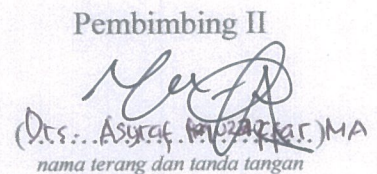 Pembimbing II
(Drs. Asyraf) MA
nama terang dan tanda tangan